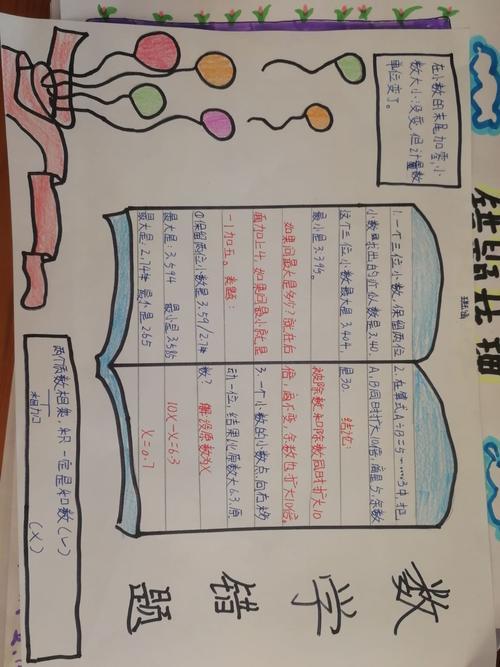 数学错题
在小数的末尾加零,小
数大小没变,但计量数
单位变了。
1.一个三位小数,保留两位
小数,求出的近似数是3.40.
这个三位小数最大是3.404,
最小是3.395.
如果问最大是多少?就在后
面加上4,如果问最小就是
-1加五。来题:
①保留两位小数是3.59/2.7
最大是:3.594 最小是3585
最大是:2.74 最小是265
2.在算式A÷B=5……3中,把
A,B同时扩大10倍,商是5,余数
是30. 结论:
被除数和除数同时扩大10
倍,商不变,余数也扩大10倍.
3.一个小数的小数点,向右移
动一位,结果比原数大6.3,原
数? 解:设原数为X
10X-X=6.3
X=0.7
两个质数相乘,积一定是和数(√)
相加 (×)